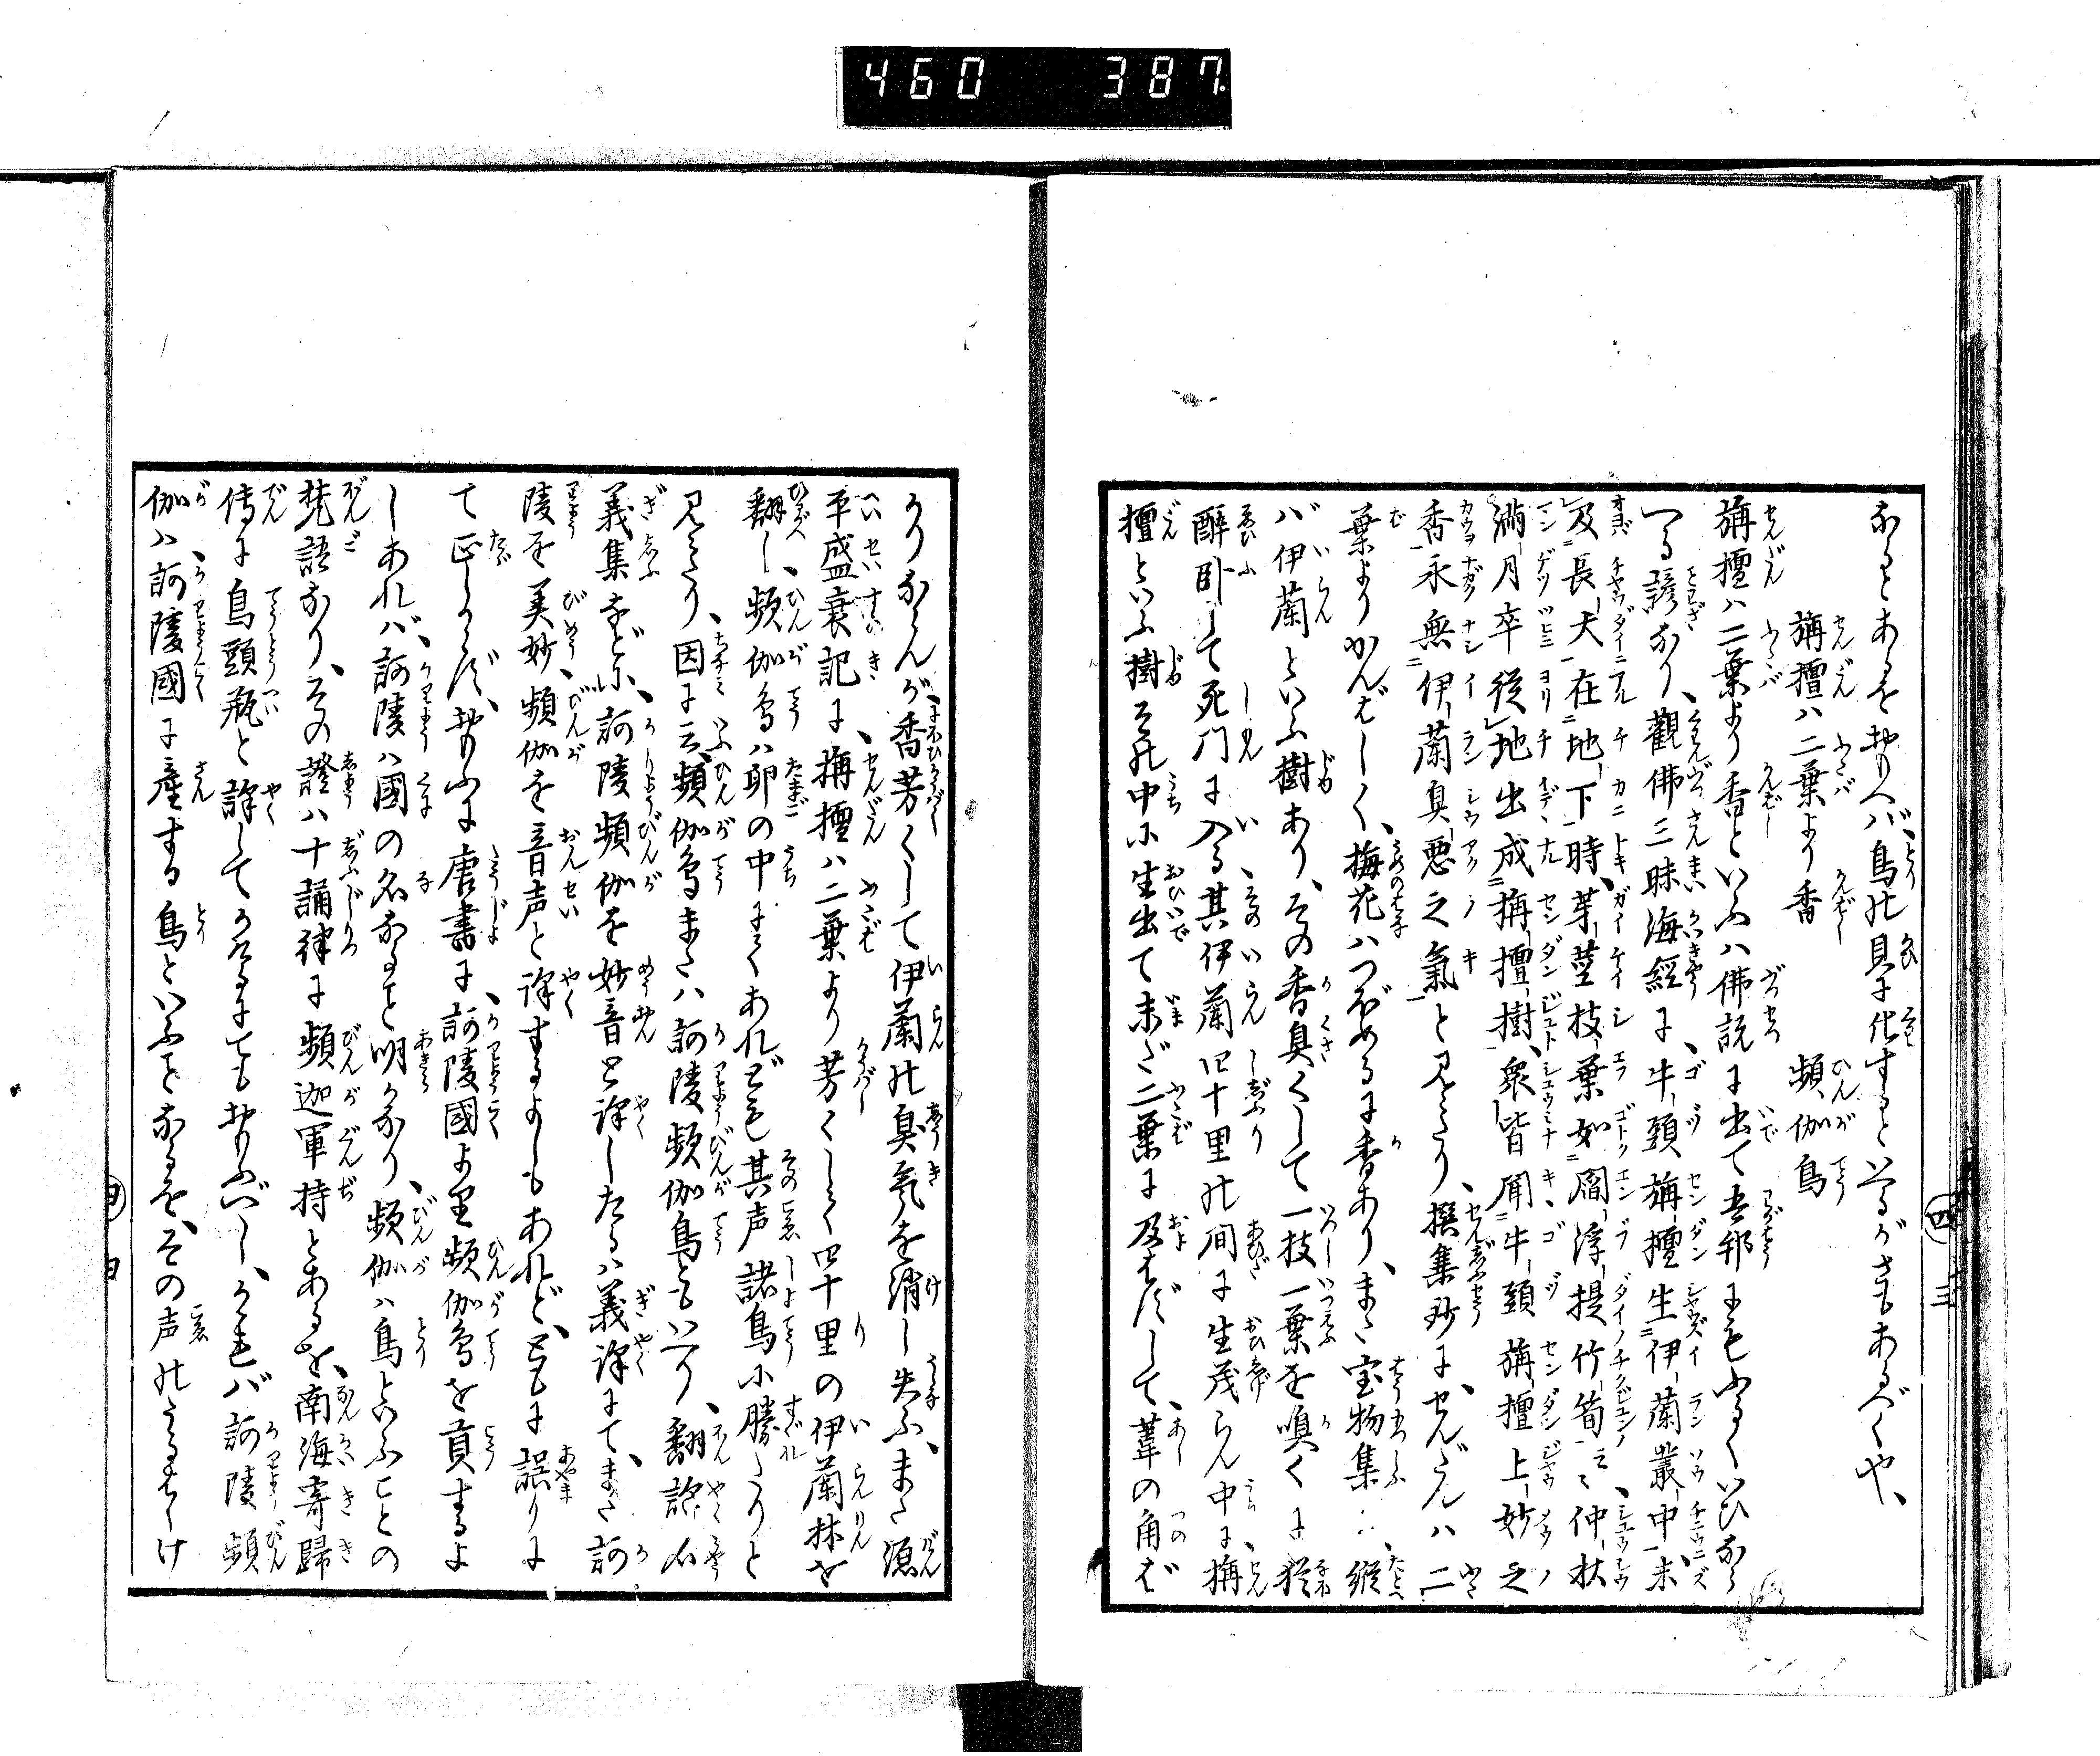 460 387
なるとあるをおもへば、鳥の貝に化すといへるがさもあるべくや、
栴檀ハ二葉より香 頻伽鳥
栴檀ハ二葉より香といふハ佛説に出て吾邦にもふるくいひなら
へる諺なり、觀佛三昧海經に、牛頭栴檀生伊蘭叢中、未
及長大在地下時、芽莖枝葉如閻浮提竹筍云々仲秋
満月卒従地出成栴檀樹、衆皆聞牛頭栴檀上妙之
香、永無伊蘭臭悪之氣と見えたり、撰集抄に、せんだんハ二
葉よりかんばしく、梅花ハつぼめるに香あり、また宝物集に、縦
バ伊蘭といふ樹あり、その香臭くして一枝一葉を嗅くに猶
醉卧して死门に入る、其伊蘭四十里の间に生茂らん中に、栴
檀といふ樹その中に生出て未だ二葉に及ばずして、葦の角ば
かりならんが香芳くして伊蘭の臭氣を消し失ふ、また源
平盛衰記に、栴檀ハ二葉より芳くして四十里の伊蘭林を
翻し、頻伽鳥ハ卵の中にてあれども其声諸鳥に勝たりと
見えたり、因に云、頻伽鳥またハ訶陵頻伽鳥ともいへり、翻訳名
義集などに、訶陵頻伽を妙音と訳したるハ義訳にて、また訶
陵を美妙、頻伽を音声と訳するよしもあれど、ともに誤りに
て正しからず、おもふに唐書に、訶陵國より頻伽鳥を貢するよ
しあれバ、訶陵ハ國の名なること明かなり、頻伽ハ鳥といふことの
梵語なり、その證ハ十誦律に頻迦軍持とあるを、南海寄歸
傳に鳥頭瓶と訳してかけるにてもおもふべし、されバ訶陵頻
伽ハ、訶陵國に産する鳥といふことなるを、その声のうるはしけ
四 三